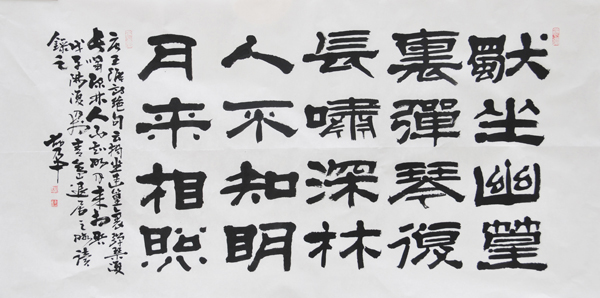 獨坐幽篁
裏彈琴復
長嘯深林
人不知明
月来相照
唐王維詩絶句云獨坐幽篁裏彈琴復
長嘯深林人不知明月来相照
戊子退居之時讀
錄之